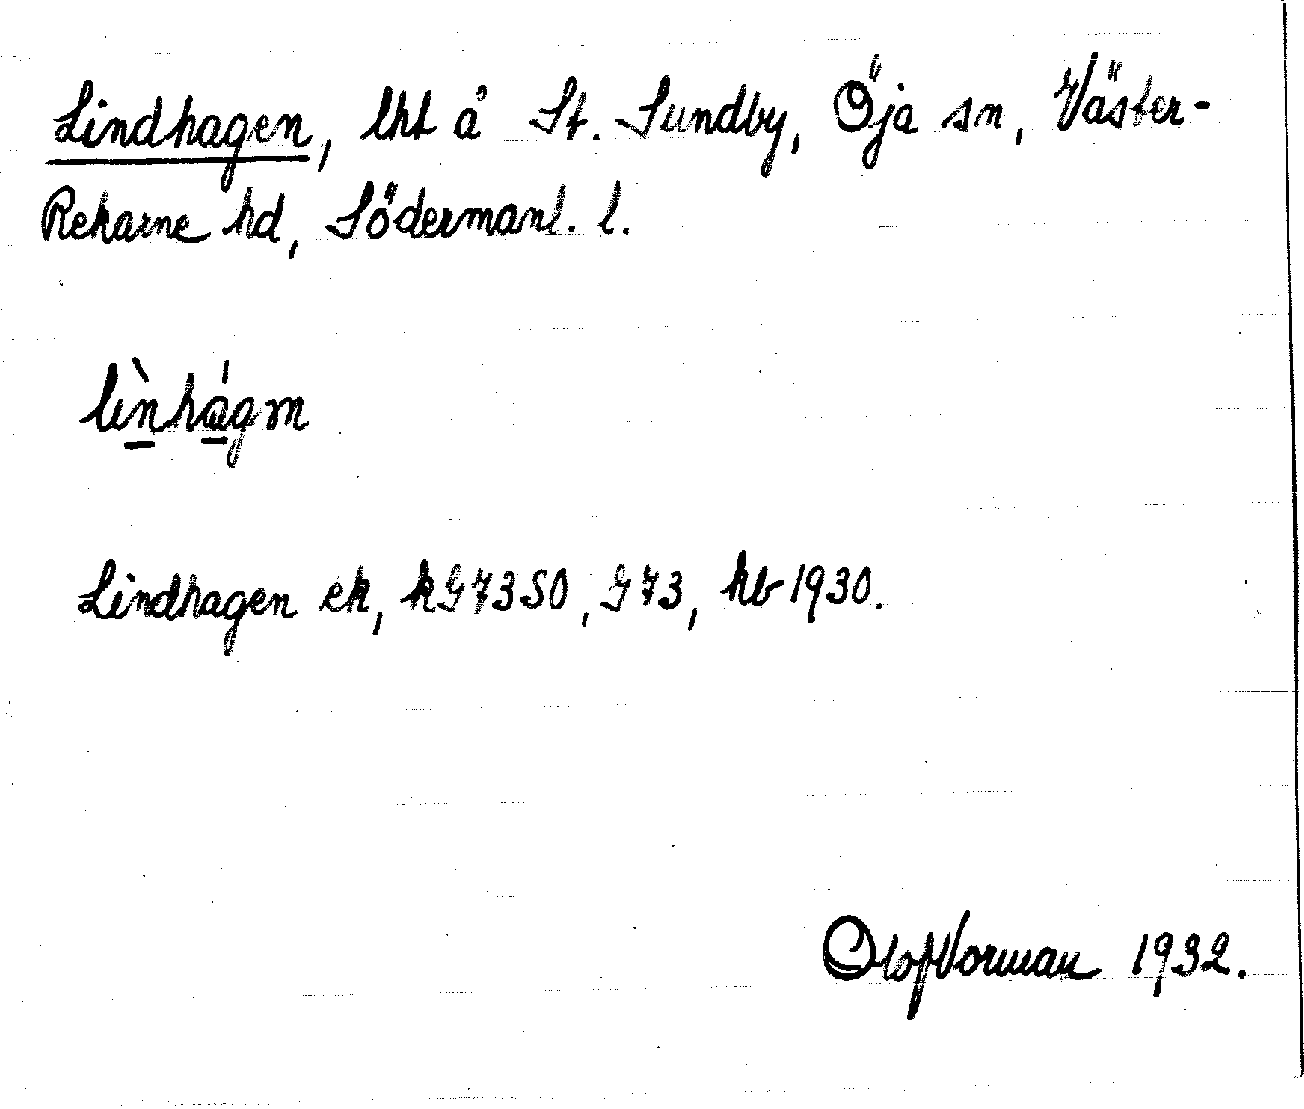 Lindhagen, lht å St. Sundby, Öja sn, Väster-
Rekarne hd, Södermanl. l.
lìnhágm
Lindhagen ek, kG7350, G73, kb 1930.
Olof Norman 1932.